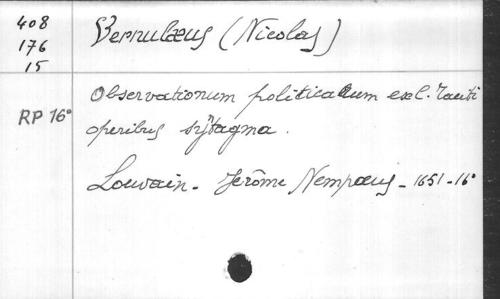 408
176
15
Vernulæus (Nicolas)
RP 16°
Observationum politicarum ex C. Taciti
operibus sÿtagma.
Louvain - Jérôme Nempæus - 1651 - 16°